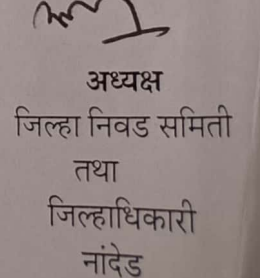 अध्यक्ष
जिल्हा निवड समिती
तथा
जिल्हाधिकारी
नांदेड